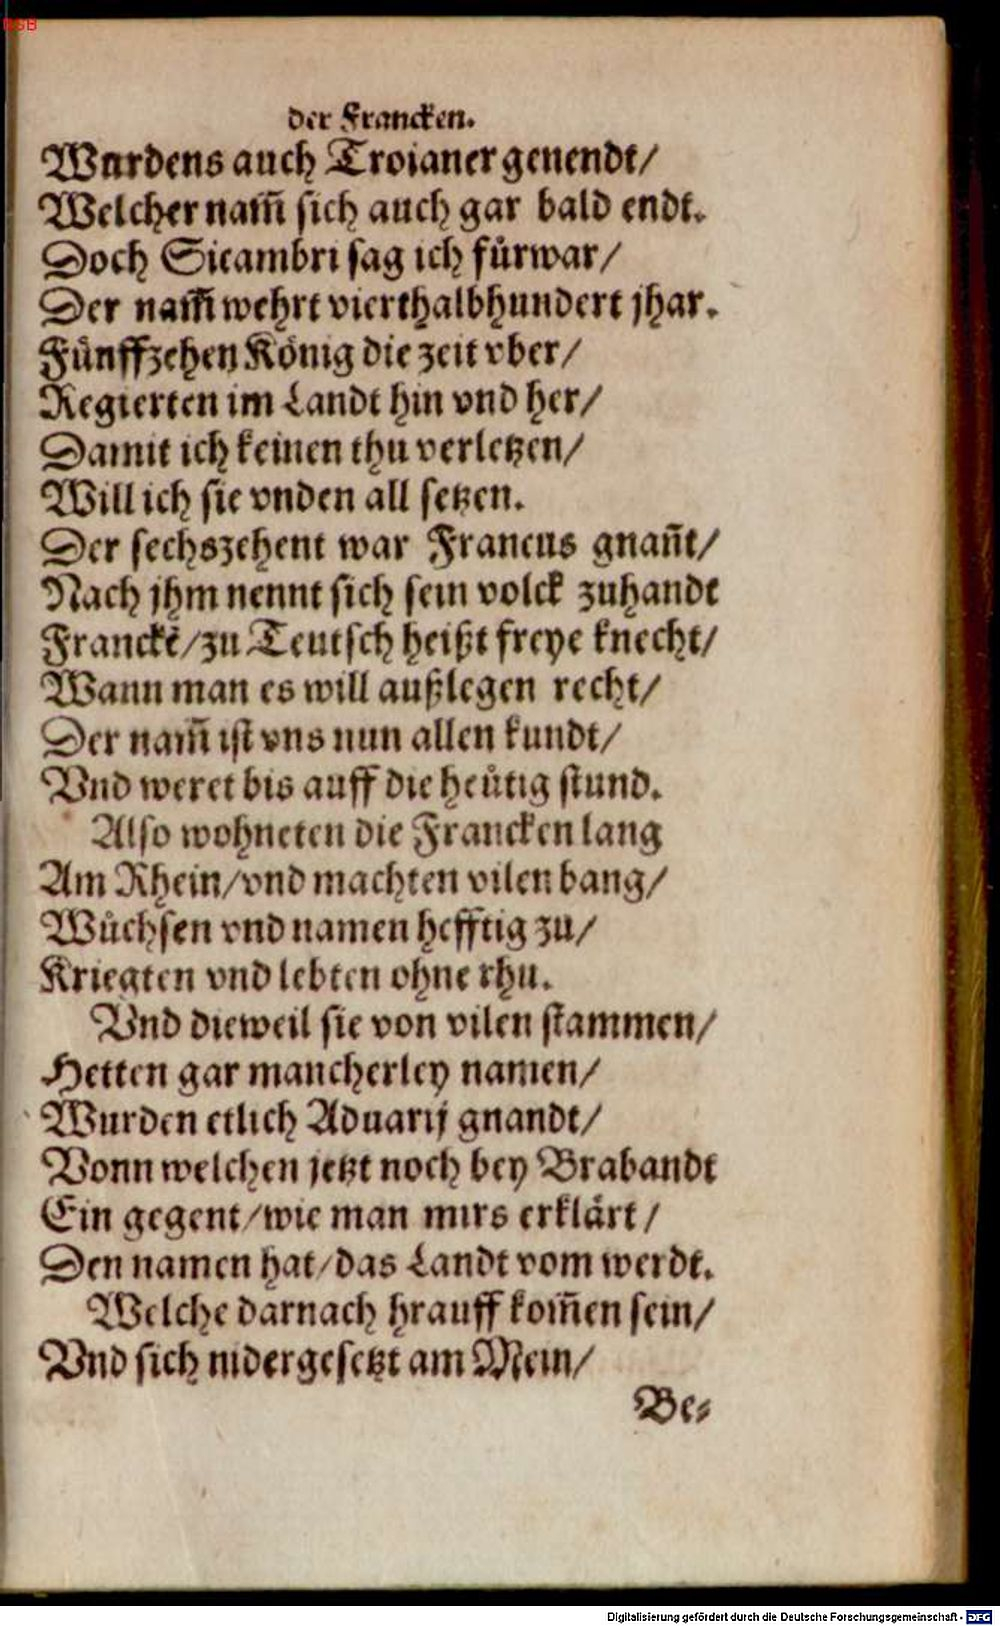 BSB
der Francken.
Wurdens auch Troianer genendt/
Welcher nam̄ sich auch gar bald endt.
Doch Sicambri sag ich fürwar/
Der nam̄ wehrt vierthalbhundert jhar.
Fünffzehen König die zeit vber/
Regierten im Landt hin vnd her/
Damit ich keinen thu verletzen/
Will ich sie vnden all setzen.
Der sechszehent war Francus gnañt/
Nach jhm nennt sich sein volck zuhandt
Franckē/zu Teutsch heißt freye knecht/
Wann man es will außlegen recht/
Der nam̄ ist vns nun allen kundt/
Vnd weret bis auff die heütig stund.
Also wohneten die Francken lang
Am Rhein/vnd machten vilen bang/
Wüchsen vnd namen hefftig zu/
Kriegten vnd lebten ohne rhu.
Vnd dieweil sie von vilen stammen/
Hetten gar mancherley namen/
Wurden etlich Aduarij gnandt/
Vonn welchen jetzt noch bey Brabandt
Ein gegent/wie man mirs erklärt/
Den namen hat/das Landt vom werdt.
Welche darnach hrauff kom̄en sein/
Vnd sich nidergesetzt am Mein/
Be⸗
Digitalisierung gefördert durch die Deutsche Forschungsgemeinschaft - DFG